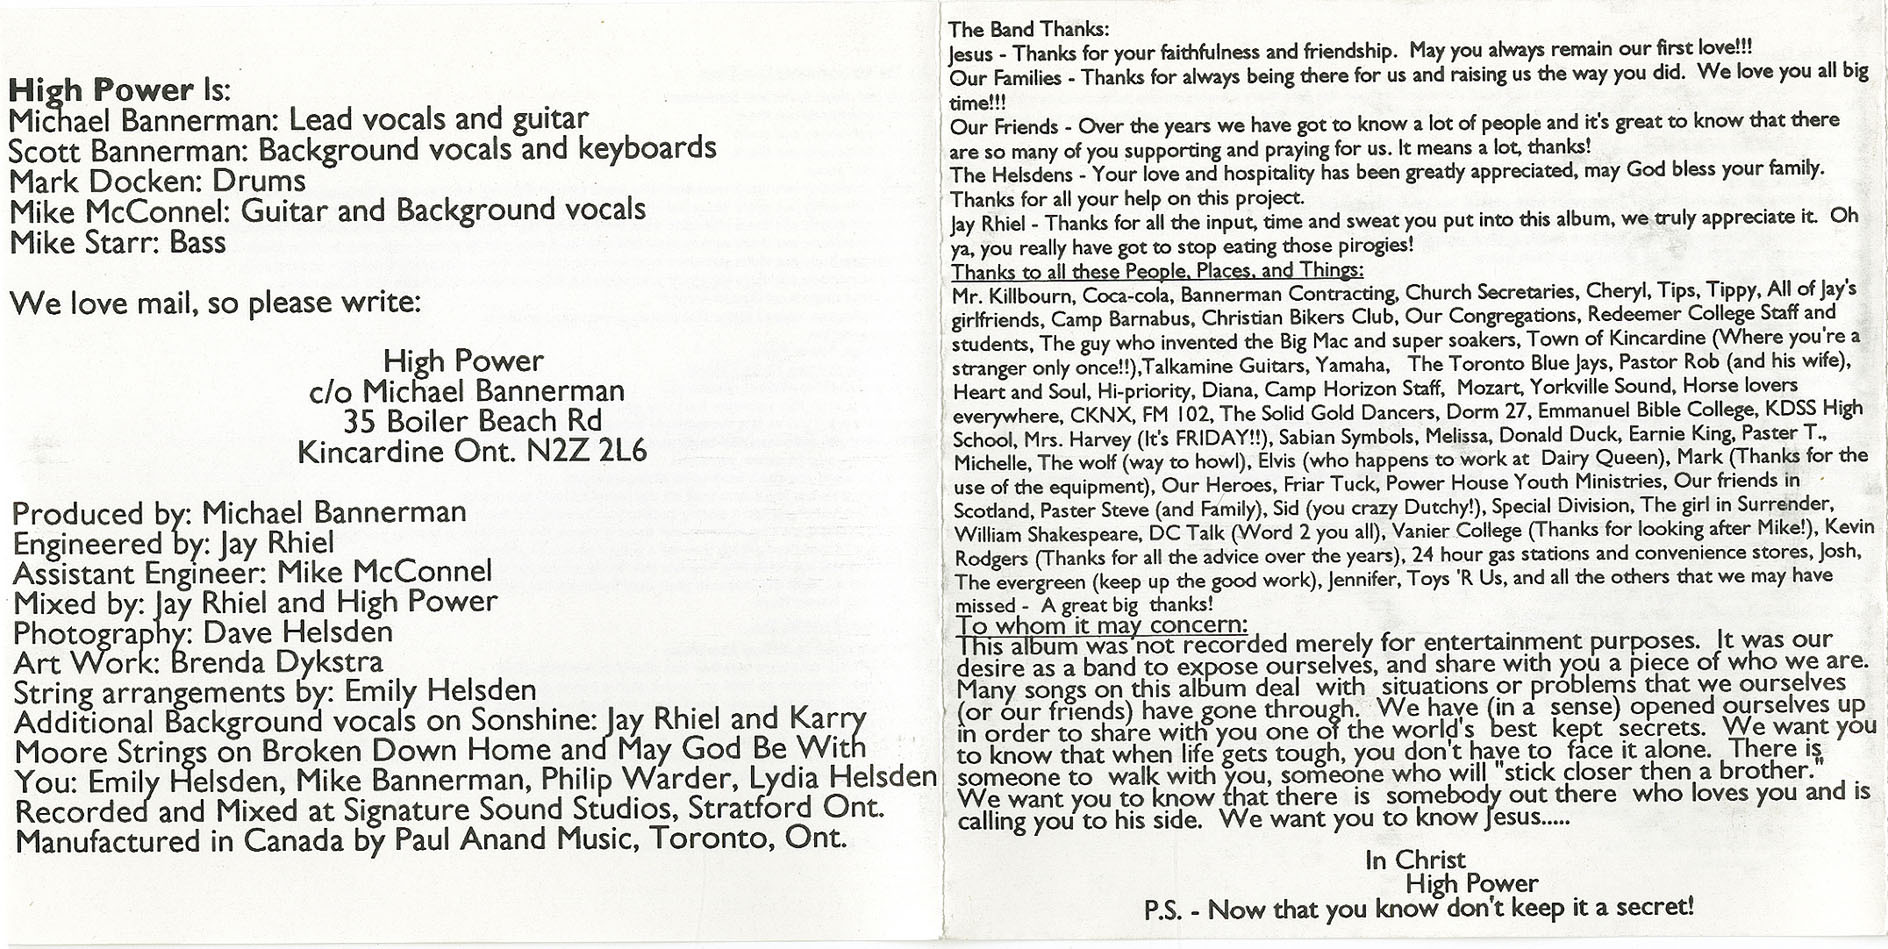 High Power Is:
Michael Bannerman: Lead vocals and guitar
Scott Bannerman: Background vocals and keyboards
Mark Docken: Drums
Mike McConnel: Guitar and Background vocals
Mike Starr: Bass
We love mail, so please write:
High Power
c/o Michael Bannerman
35 Boiler Beach Rd
Kincardine Ont. N2Z 2L6
Produced by: Michael Bannerman
Engineered by: Jay Rhiel
Assistant Engineer: Mike McConnel
Mixed by: Jay Rhiel and High Power
Photography: Dave Helsden
Art Work: Brenda Dykstra
String arrangements by: Emily Helsden
Additional Background vocals on Sonshine: Jay Rhiel and Karry
Moore Strings on Broken Down Home and May God Be With
You: Emily Helsden, Mike Bannerman, Philip Warder, Lydia Helsden
Recorded and Mixed at Signature Sound Studios, Stratford Ont.
Manufactured in Canada by Paul Anand Music, Toronto, Ont.
The Band Thanks:
Jesus - Thanks for your faithfulness and friendship. May you always remain our first love!!!
Our Families - Thanks for always being there for us and raising us the way you did. We love you all big
time!!!
Our Friends - Over the years we have got to know a lot of people and it's great to know that there
are so many of you supporting and praying for us. It means a lot, thanks!
The Helsdens - Your love and hospitality has been greatly appreciated, may God bless your family.
Thanks for all your help on this project.
Jay Rhiel - Thanks for all the input, time and sweat you put into this album, we truly appreciate it. Oh
ya, you really have got to stop eating those pirogies!
Thanks to all these People, Places, and Things:
Mr. Killbourn, Coca-cola, Bannerman Contracting, Church Secretaries, Cheryl, Tips, Tippy, All of Jay's
girlfriends, Camp Barnabus, Christian Bikers Club, Our Congregations, Redeemer College Staff and
students, The guy who invented the Big Mac and super soakers, Town of Kincardine (Where you're a
stranger only once!!),Talkamine Guitars, Yamaha, The Toronto Blue Jays, Pastor Rob (and his wife),
Heart and Soul, Hi-priority, Diana, Camp Horizon Staff, Mozart, Yorkville Sound, Horse lovers
everywhere, CKNX, FM 102, The Solid Gold Dancers, Dorm 27, Emmanuel Bible College, KDSS High
School, Mrs. Harvey (It's FRIDAY!!), Sabian Symbols, Melissa, Donald Duck, Earnie King, Paster T.,
Michelle, The wolf (way to howl), Elvis (who happens to work at Dairy Queen), Mark (Thanks for the
use of the equipment), Our Heroes, Friar Tuck, Power House Youth Ministries, Our friends in
Scotland, Paster Steve (and Family), Sid (you crazy Dutchy!), Special Division, The girl in Surrender,
William Shakespeare, DC Talk (Word 2 you all), Vanier College (Thanks for looking after Mike!), Kevin
Rodgers (Thanks for all the advice over the years), 24 hour gas stations and convenience stores, Josh,
The evergreen (keep up the good work), Jennifer, Toys 'R Us, and all the others that we may have
missed - A great big thanks!
To whom it may concern:
This album was not recorded merely for entertainment purposes. It was our
desire as a band to expose ourselves, and share with you a piece of who we are.
Many songs on this album deal with situations or problems that we ourselves
(or our friends) have gone through. We have (in a sense) opened ourselves up
in order to share with you one of the world's best kept secrets. We want you
to know that when life gets tough, you don't have to face it alone. There is
someone to walk with you, someone who will "stick closer then a brother."
We want you to know that there is somebody out there who loves you and is
calling you to his side. We want you to know Jesus.....
In Christ
High Power
P.S. - Now that you know don't keep it a secret!